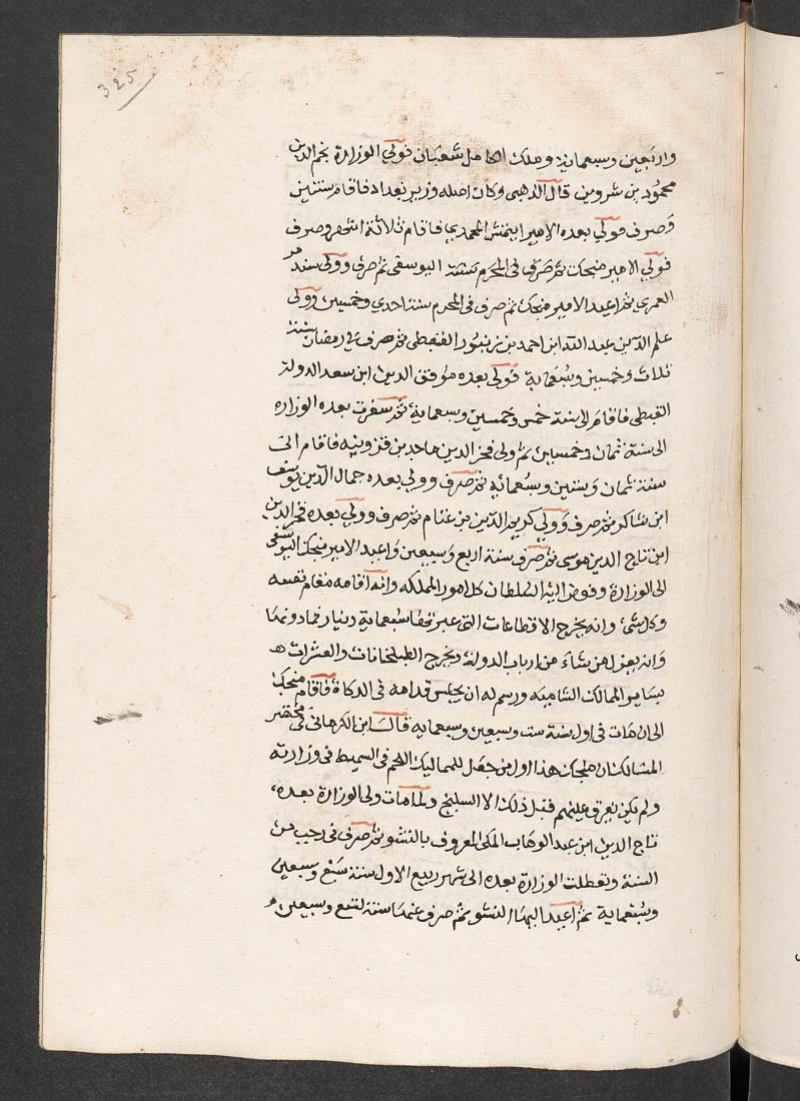 325
واربعين وسبعماية وملك الكامل شعبان فولي الوزارة نجم الدين
محمود بن شروين قال الذهبي وكان اصله وزير بغداد فاقام سنتين
وصرف فولي بعده الامير ايتمش المحمدي فاقام ثلاثة اشهر وصرف
فولي الامير منجك ثم صرف في المحرم سنة اليوسفي ثم صرف وولى سندمر
العمري ثم اعيد الامير منجك ثم صرف في المحرم سنة احدي وخمسين وولى
علم الدين عبد الله ابن احمد بن زنبور القبطي ثم صرف في رمضان سنة
ثلاث وخمسين وسبعماية فولى بعده موفق الدين ابن سعد الدولة
القبطي فاقام الى سنة خمس وخمسين وسبعماية ثم شغرت بعده الوزارة
الى سنة ثمان وخمسين ثم ولى فخر الدين ماجد بن قزوينه فاقام الى
سنة ثمان وستين وسبعماية ثم صرف وولي بعده جمال الدين يوسف
ابن شاكر ثم صرف وولي كريم الدين بن غنام ثم صرف وولي بعده فخر الدين
ابن تاج الدين موسى ثم صرف سنة اربع وسبعين واعيد الامير منجك اليوسفى
الى الوزارة وفوض اليه السلطان كل امور المملكه وانه اقامه مقام نفسه
وكل شيء وانه يخرج الاقطاعات التى عبرتها سبعماية دينار فما دونها
وانه يعزل من شاء من ارباب الدولة ويخرج الطبلخانات والعشرات
بساير الممالك الشاميه ورسم له ان يجلس قدامه في الدكاة فاقام منجك
الى ان مات في اول سنة ست وسبعين وسبعمايه قال ابن الكرماني في مختصر
المسالك ان منجك هذا اول من جعل للمماليك اللحم في السميط في وزارته
ولم يكن يعرق عليهم قبل ذلك الا السليخ ولما مات ولى الوزارة بعده
تاج الدين ابن عبد الوهاب الملكى المعروف بالنشو ثم صرف في رجب من
السنة وتعطلت الوزارة بعده الى شهر ربيع الاول سنة سبع وسبعين
وسبعماية ثم اعيد اليها النشو ثم صرف عنها سنة تسع وسبعين